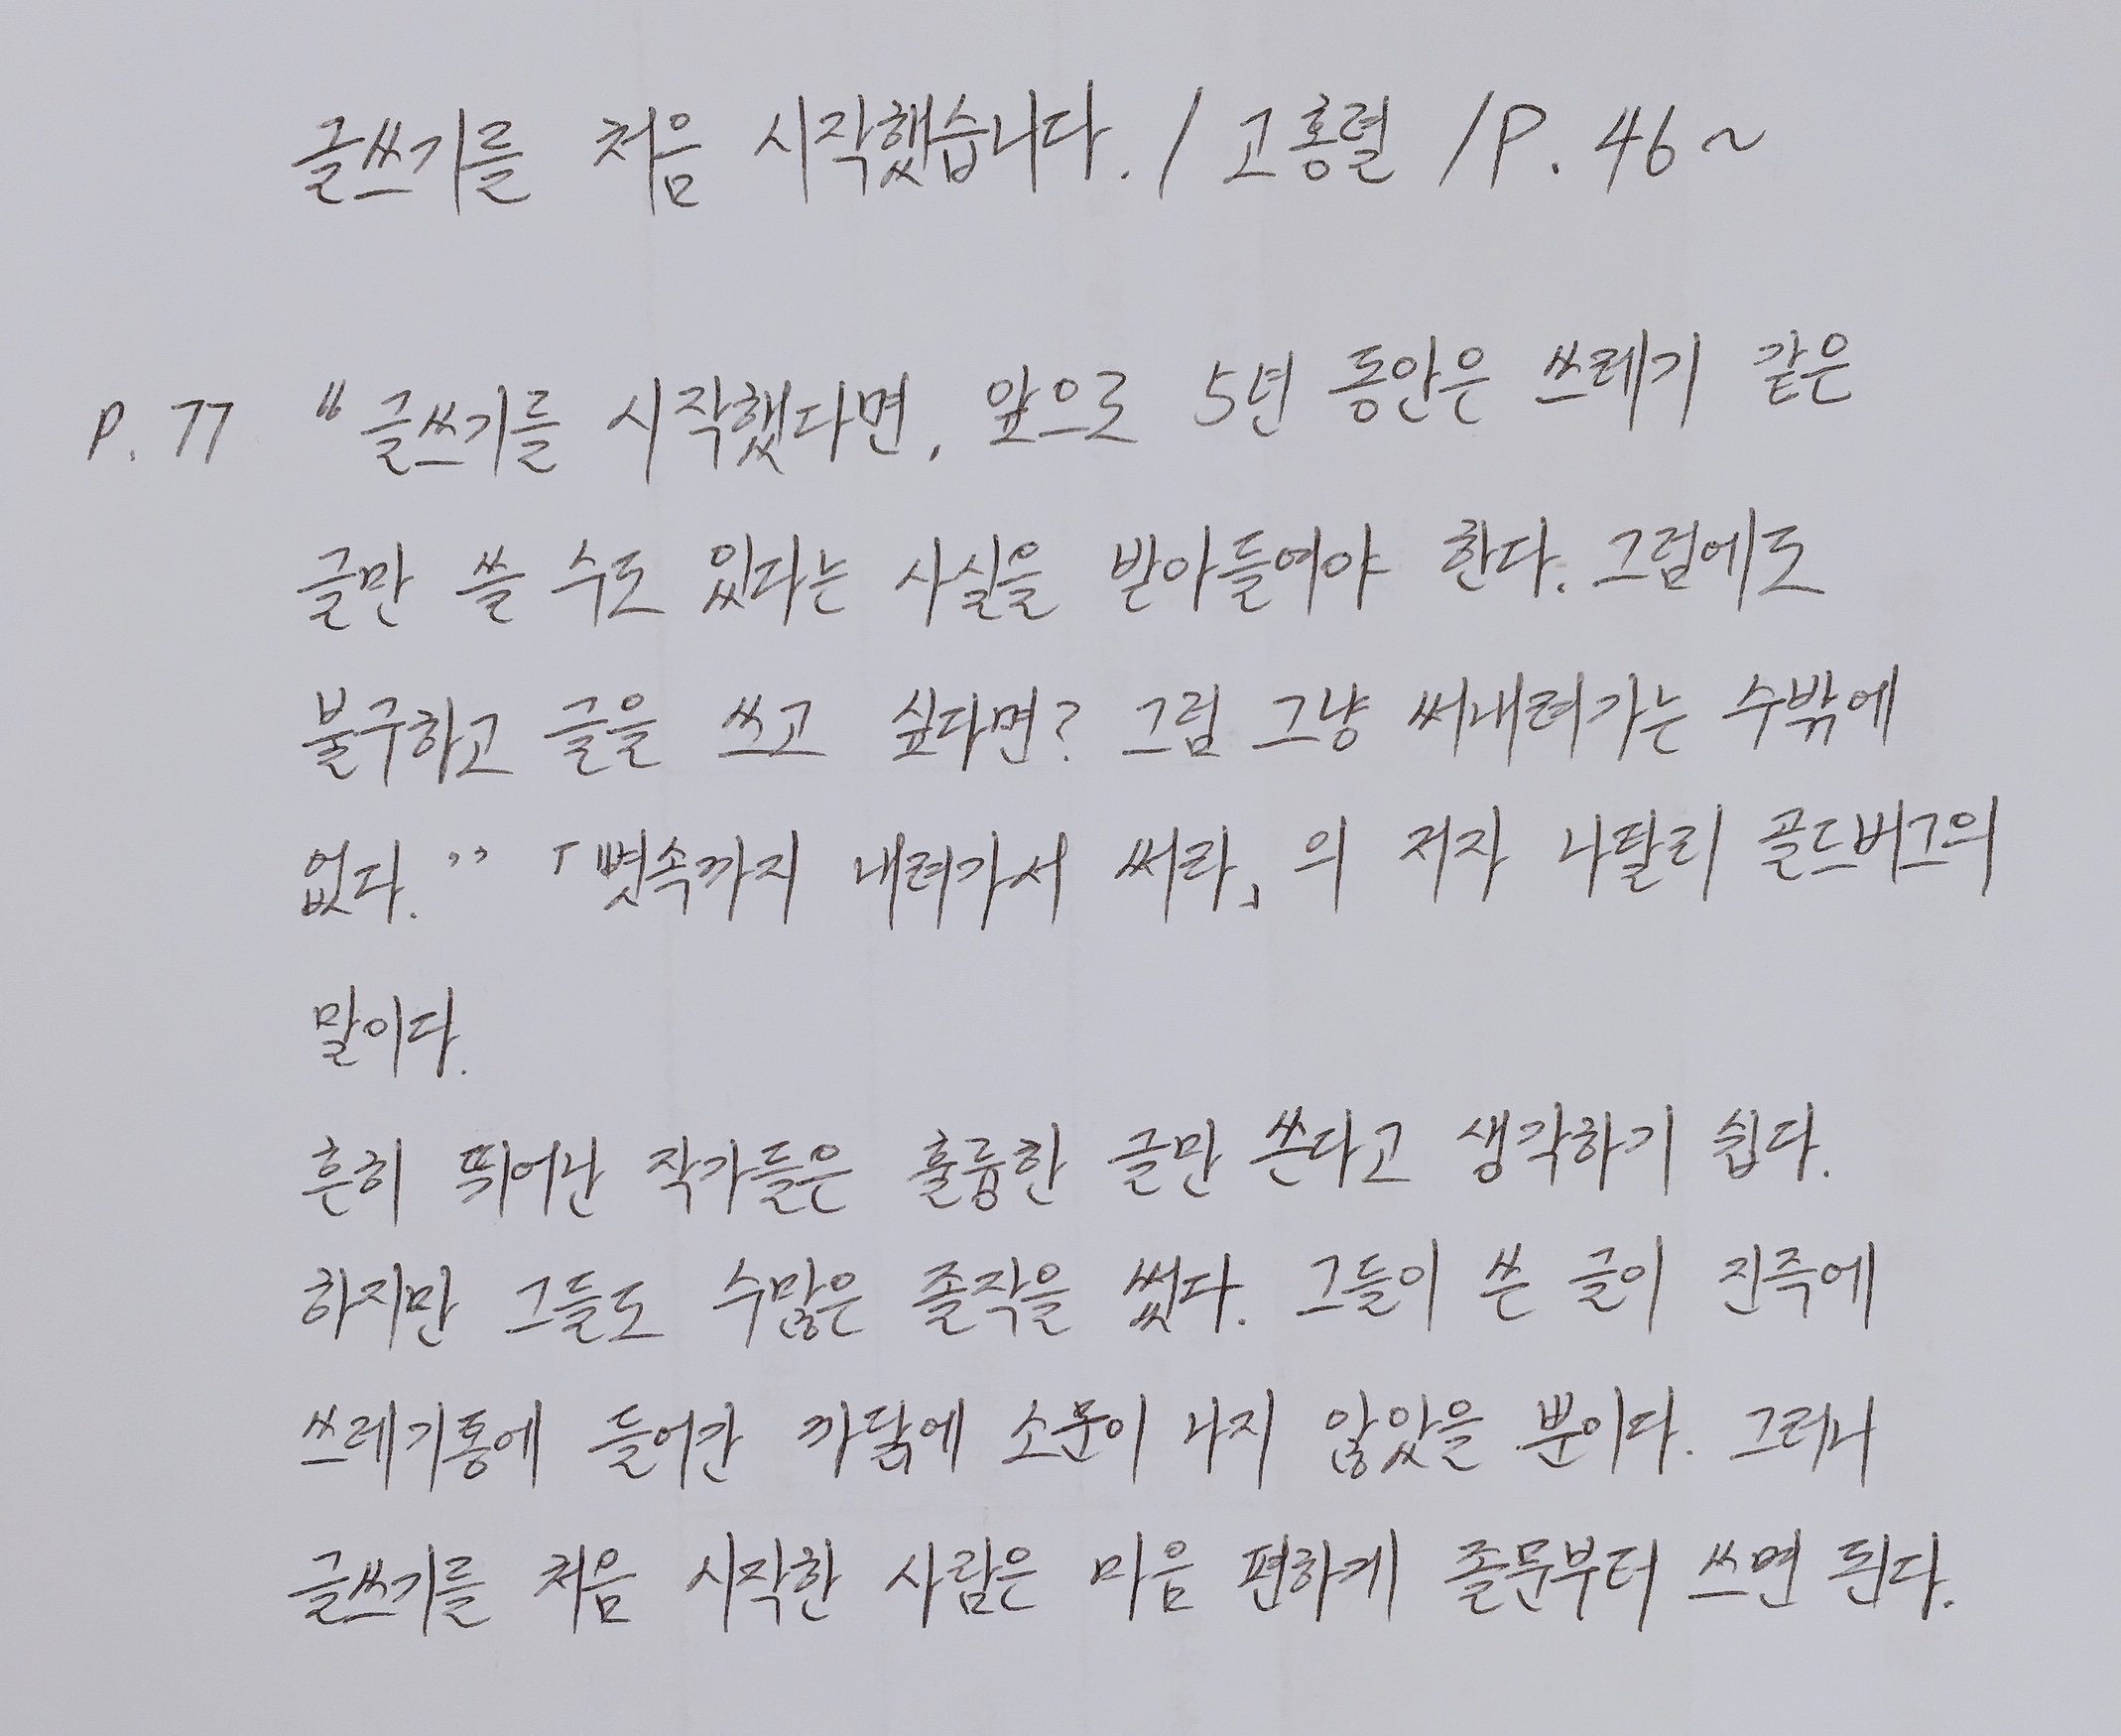 글쓰기를 처음 시작했습니다. / 고홍렬 / P. 46 ~
P. 77 "글쓰기를 시작했다면, 앞으로 5년 동안은 쓰레기 같은
글만 쓸 수도 있다는 사실을 받아들여야 한다. 그럼에도
불구하고 글을 쓰고 싶다면? 그럼 그냥 써내려가는 수밖에
없다." 「뼛속까지 내려가서 써라」의 저자 나탈리 골드버그의
말이다.
흔히 뛰어난 작가들은 훌륭한 글만 쓴다고 생각하기 쉽다.
하지만 그들도 수많은 졸작을 썼다. 그들이 쓴 글이 진즉에
쓰레기통에 들어간 까닭에 소문이 나지 않았을 뿐이다. 그러나
글쓰기를 처음 시작한 사람은 마음 편하게 졸문부터 쓰면 된다.